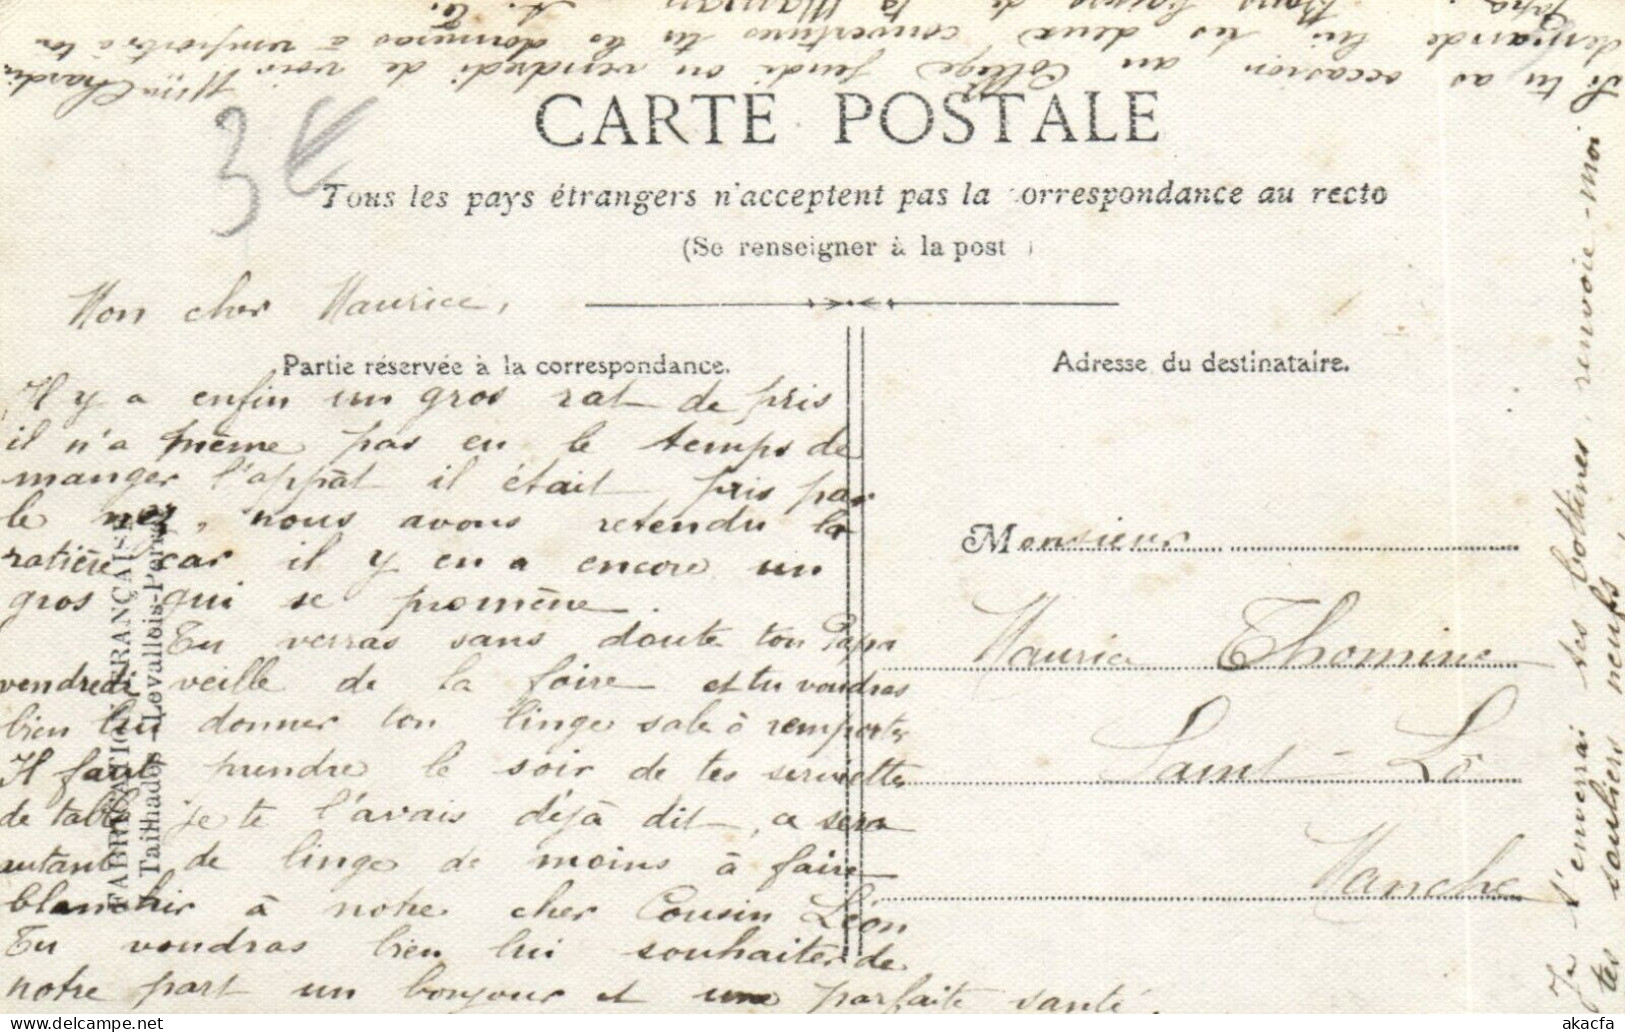 CARTE POSTALE
Tous les pays étrangers n'acceptent pas la correspondance au recto
(Se renseigner à la post )
Mon cher Maurice,
Partie réservée à la correspondance.
Il y a enfin un gros rat de pris
il n'a même pas eu le temps de
manger l'appât il était pris par
le nez, nous avons retendu la
ratière car il y en a encore un
gros qui se promène.
Tu verras sans doute ton Papa
vendredi veille de la foire et tu voudras
bien lui donner ton linge sale à remporter
Il faut prendre le soir de tes serviettes
de table je te l'avais déjà dit, ça sera
autant de linge de moins à faire
blanchir à notre cher Cousin Léon
Tu voudras bien lui souhaiter de
notre part un bonjour et une parfaite santé.
Adresse du destinataire.
Monsieur
Maurice Thomine
Saint-Lô
Manche
FABRICATION FRANÇAISE
Tailhades - Levallois-Perret
Je t'enverrai tes bottines, renvoie-moi
tes souliers neufs.
Si tu as occasion au Collège jeudi ou vendredi de voir Mme Chardin
demande lui les deux couvertures tu les donneras à remporter à ton
Papa. Bons baisers de ta Maman A. T.
3€
akacfa
www.delcampe.net